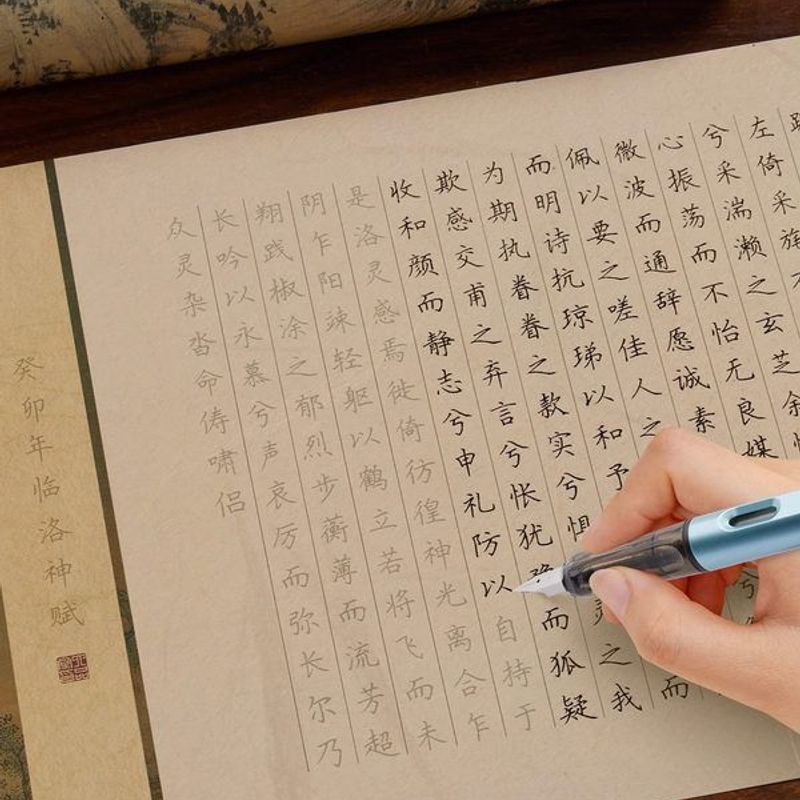 左倚采旄
兮采湍濑之玄芝余
心振荡而不怡无良媒
微波而通辞愿诚素
佩以要之嗟佳人之
而明诗抗琼珶以和予而
为期执眷眷之款实兮惧灵之我
欺感交甫之弃言兮怅犹豫而狐疑
收和颜而静志兮申礼防以自持于
是洛灵感焉徙倚彷徨神光离合乍
阴乍阳竦轻躯以鹤立若将飞而未
翔践椒涂之郁烈步蘅薄而流芳超
长吟以永慕兮声哀厉而弥长尔乃
众灵杂沓命俦啸侣
癸卯年临洛神赋